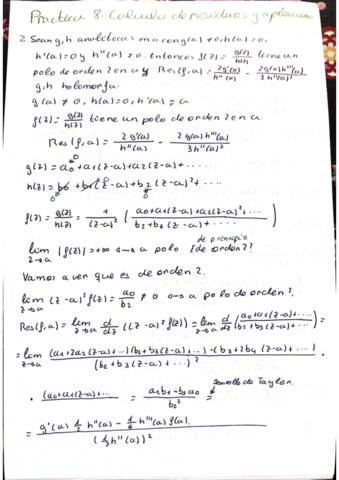 Practica 8. Calculo de residuos y aplicacion
2. Sean g, h analíticas en a con g(a) ≠ 0, h(a) = 0,
h'(a) = 0 y h''(a) ≠ 0. Entonces f(z) = g(z)/h(z) tiene un
polo de orden 2 en a y Res(f,a) = 2g'(a)/h''(a) - 2g(a)h'''(a)/3h''(a)²
g, h holomorfa.
g(a) ≠ 0, h(a)=0, h'(a) = a
f(z) = g(z)/h(z) tiene un polo de orden 2 en a.
Res(f,a) = 2g'(a)/h''(a) - 2g(a)h'''(a)/3h''(a)²
g(z) = a0 + a1(z-a) + a2(z-a) + ....
h(z) = b0 + b1(z-a) + b2(z-a)² + ...
f(z) = g(z)/h(z) = 1/(z-a)² (a0+a1(z-a)+a2(z-a)²+.../b2+b3(z-a)+....)
lim z→a |f(z)| = +∞ ↔ a polo de principio ¿de orden 2?
Vamos a ver que es de orden 2.
lim z→a (z-a)² f(z) = a0/b2 ≠ 0 ↔ a polo de orden 2.
Res(f,a) = lim z→a d/dz ((z-a)² f(z)) = lim z→a d/dz (a0+a1(z-a)+.../b2+b3(z-a)+...) =
= lim z→a (a1+2a2(z-a)+...)(b2+b3(z-a)+...)-(b3+2b4(z-a)+...)/(b2+b3(z-a)+...)² .
· (a0+a1(z-a)+... = a1b2-b3a0/b2² = desarrollo de Taylor.
= g'(a) 1/2 h''(a) - 1/6 h'''(a) g(a)./(1/2 h''(a))²